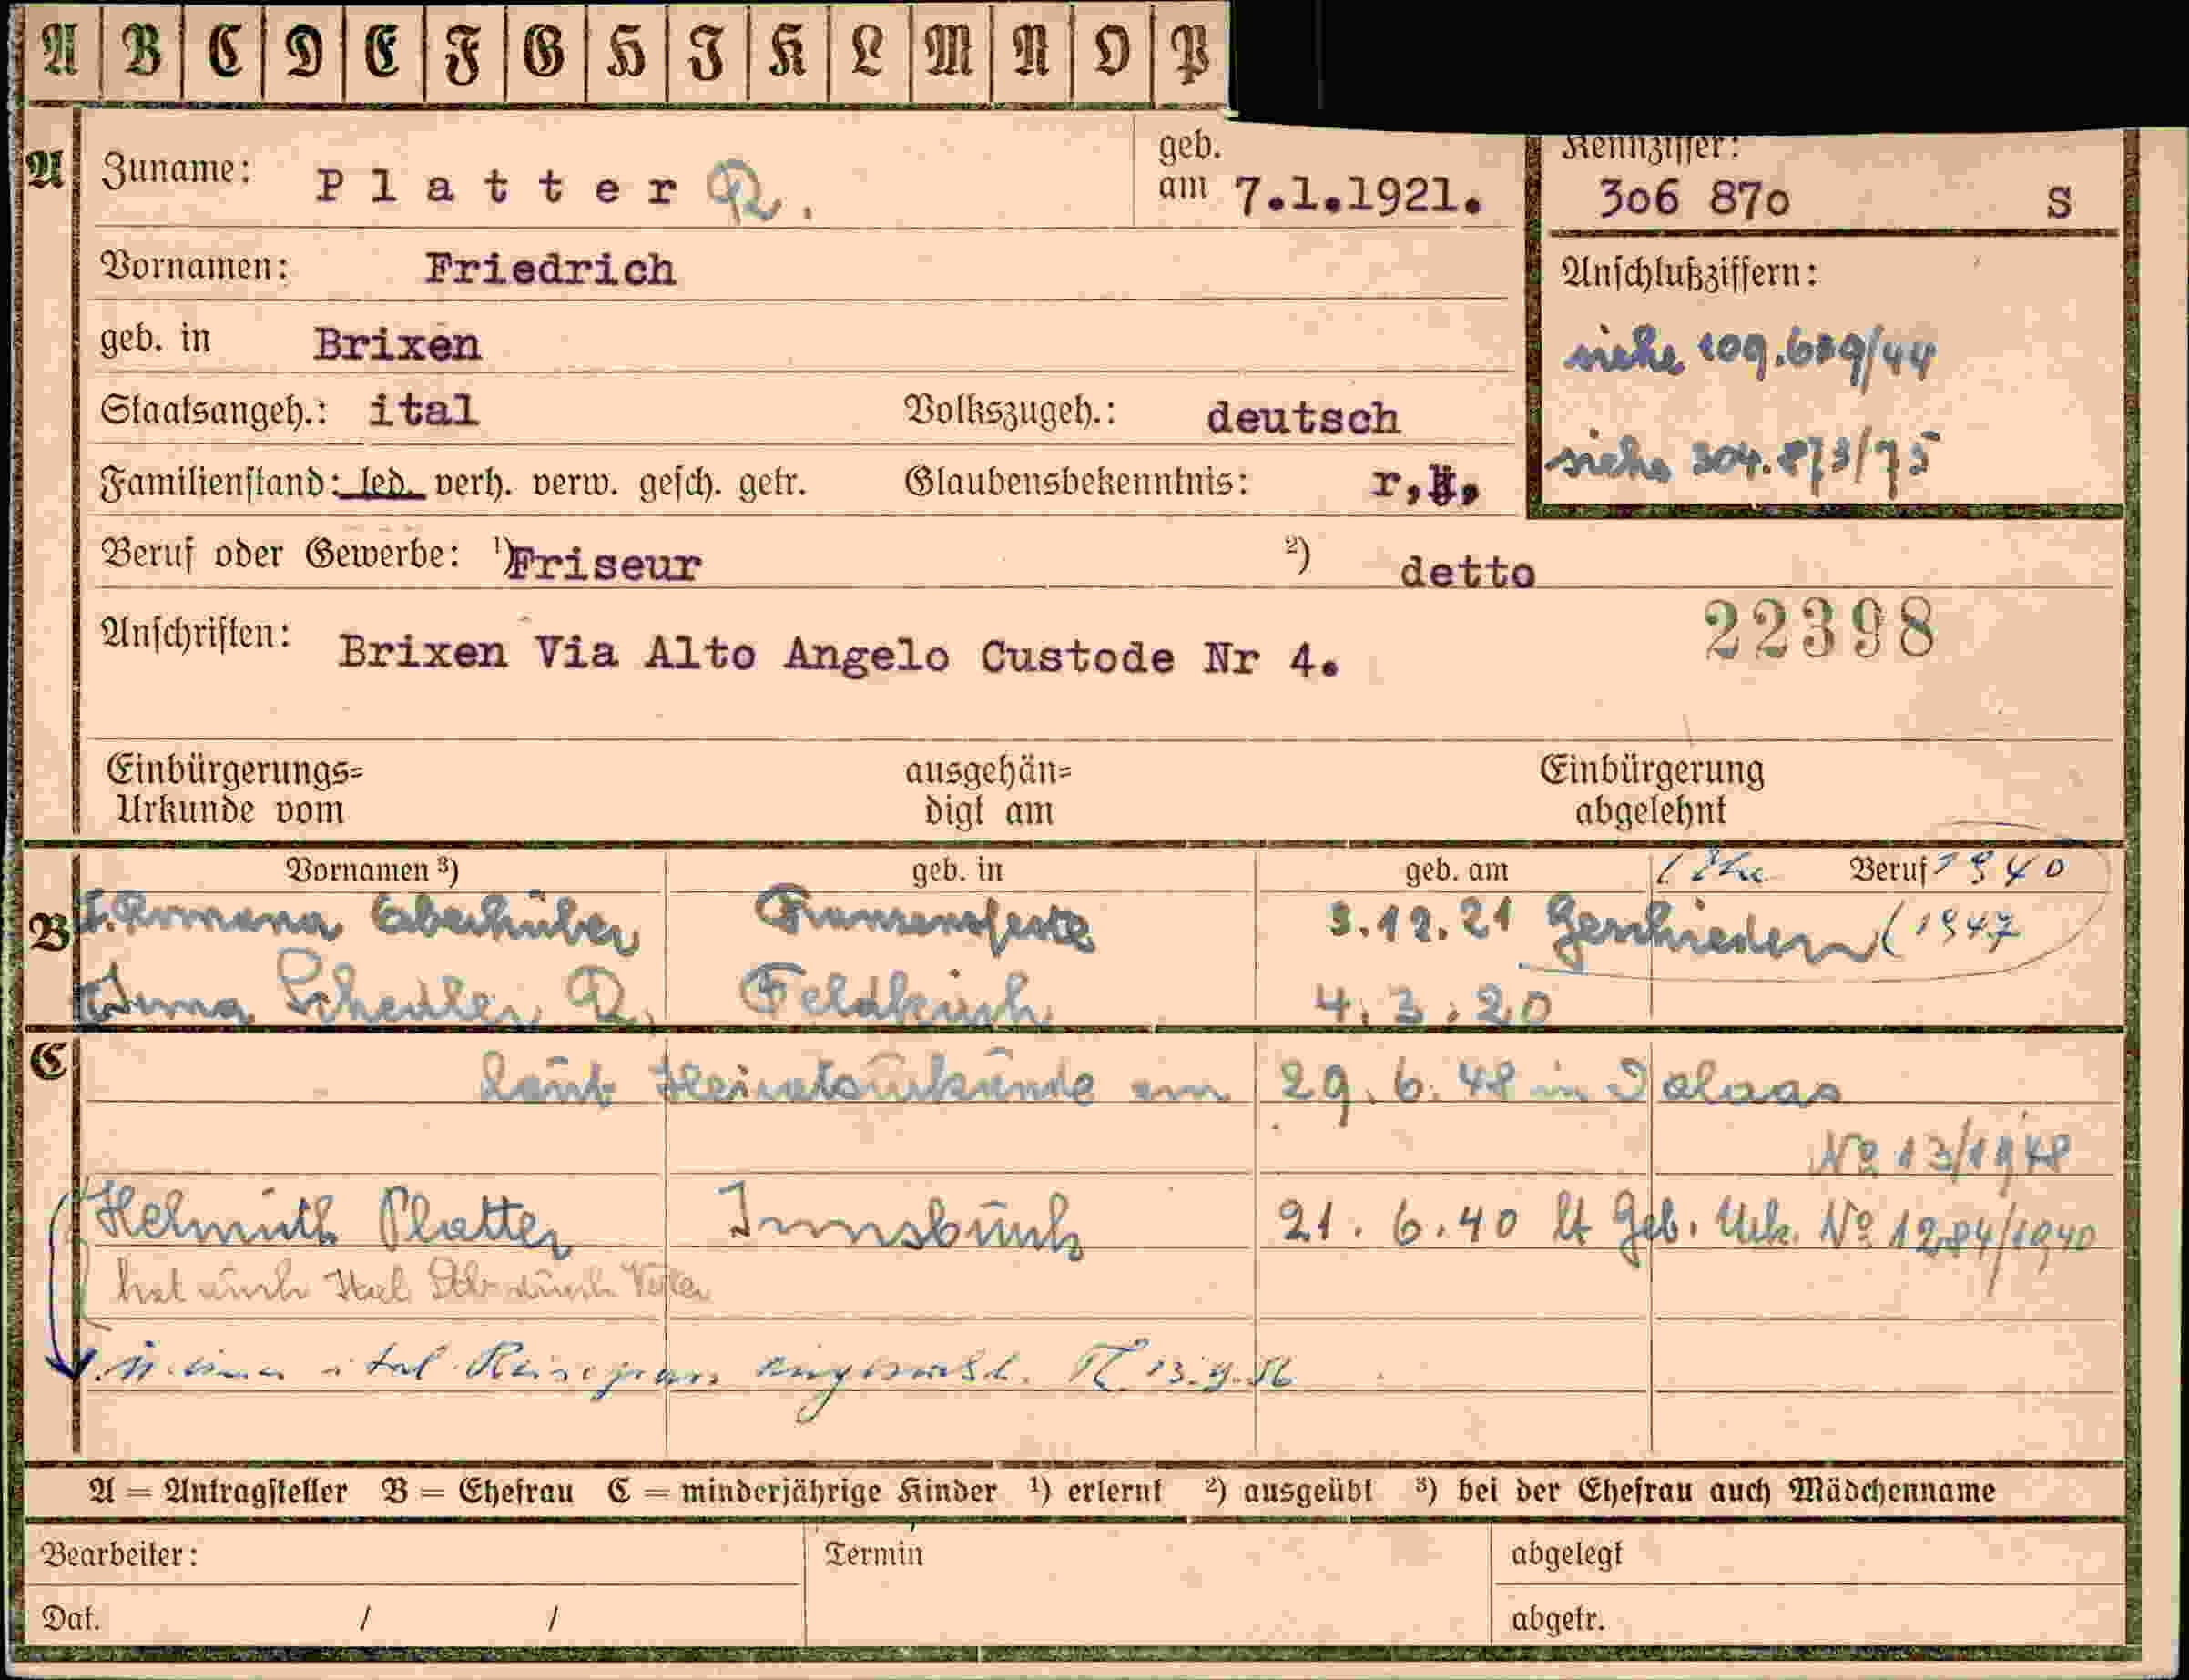 A B C D E F G H I K L M N O P
A
Zuname: Platter R.
geb. am 7.1.1921.
Kennziffer:
306 870 S
Vornamen: Friedrich
Anschlußziffern:
geb. in Brixen
siehe 109.689/44
Staatsangeh.: ital Volkszugeh.: deutsch
siehe 304.873/75
Familienstand: led. verh. verw. gesch. getr. Glaubensbekenntnis: r,k,
Beruf oder Gewerbe: ¹) Friseur ²) detto
22398
Anschriften: Brixen Via Alto Angelo Custode Nr 4.
Einbürgerungs=
Urkunde vom
ausgehän=
digt am
Einbürgerung
abgelehnt
Vornamen ³) geb. in geb. am Beruf 1940
B Romana Oberhuber Franzensfeste 3.12.21 Geschieden (1947
Scheuler R. Feldkirch 4.3.20
C
laut Heiratsurkunde am 29.6.48 in Dalaas
№ 13/1948
Helmuth Platter Innsbruck 21.6.40 lt Geb. Urk. № 1284/1940
hat auch durch
ital. Reisepass 13.9.56
A = Antragsteller B = Ehefrau C = minderjährige Kinder ¹) erlernt ²) ausgeübt ³) bei der Ehefrau auch Mädchenname
Bearbeiter: Termin abgelegt
Dat. / / abgetr.